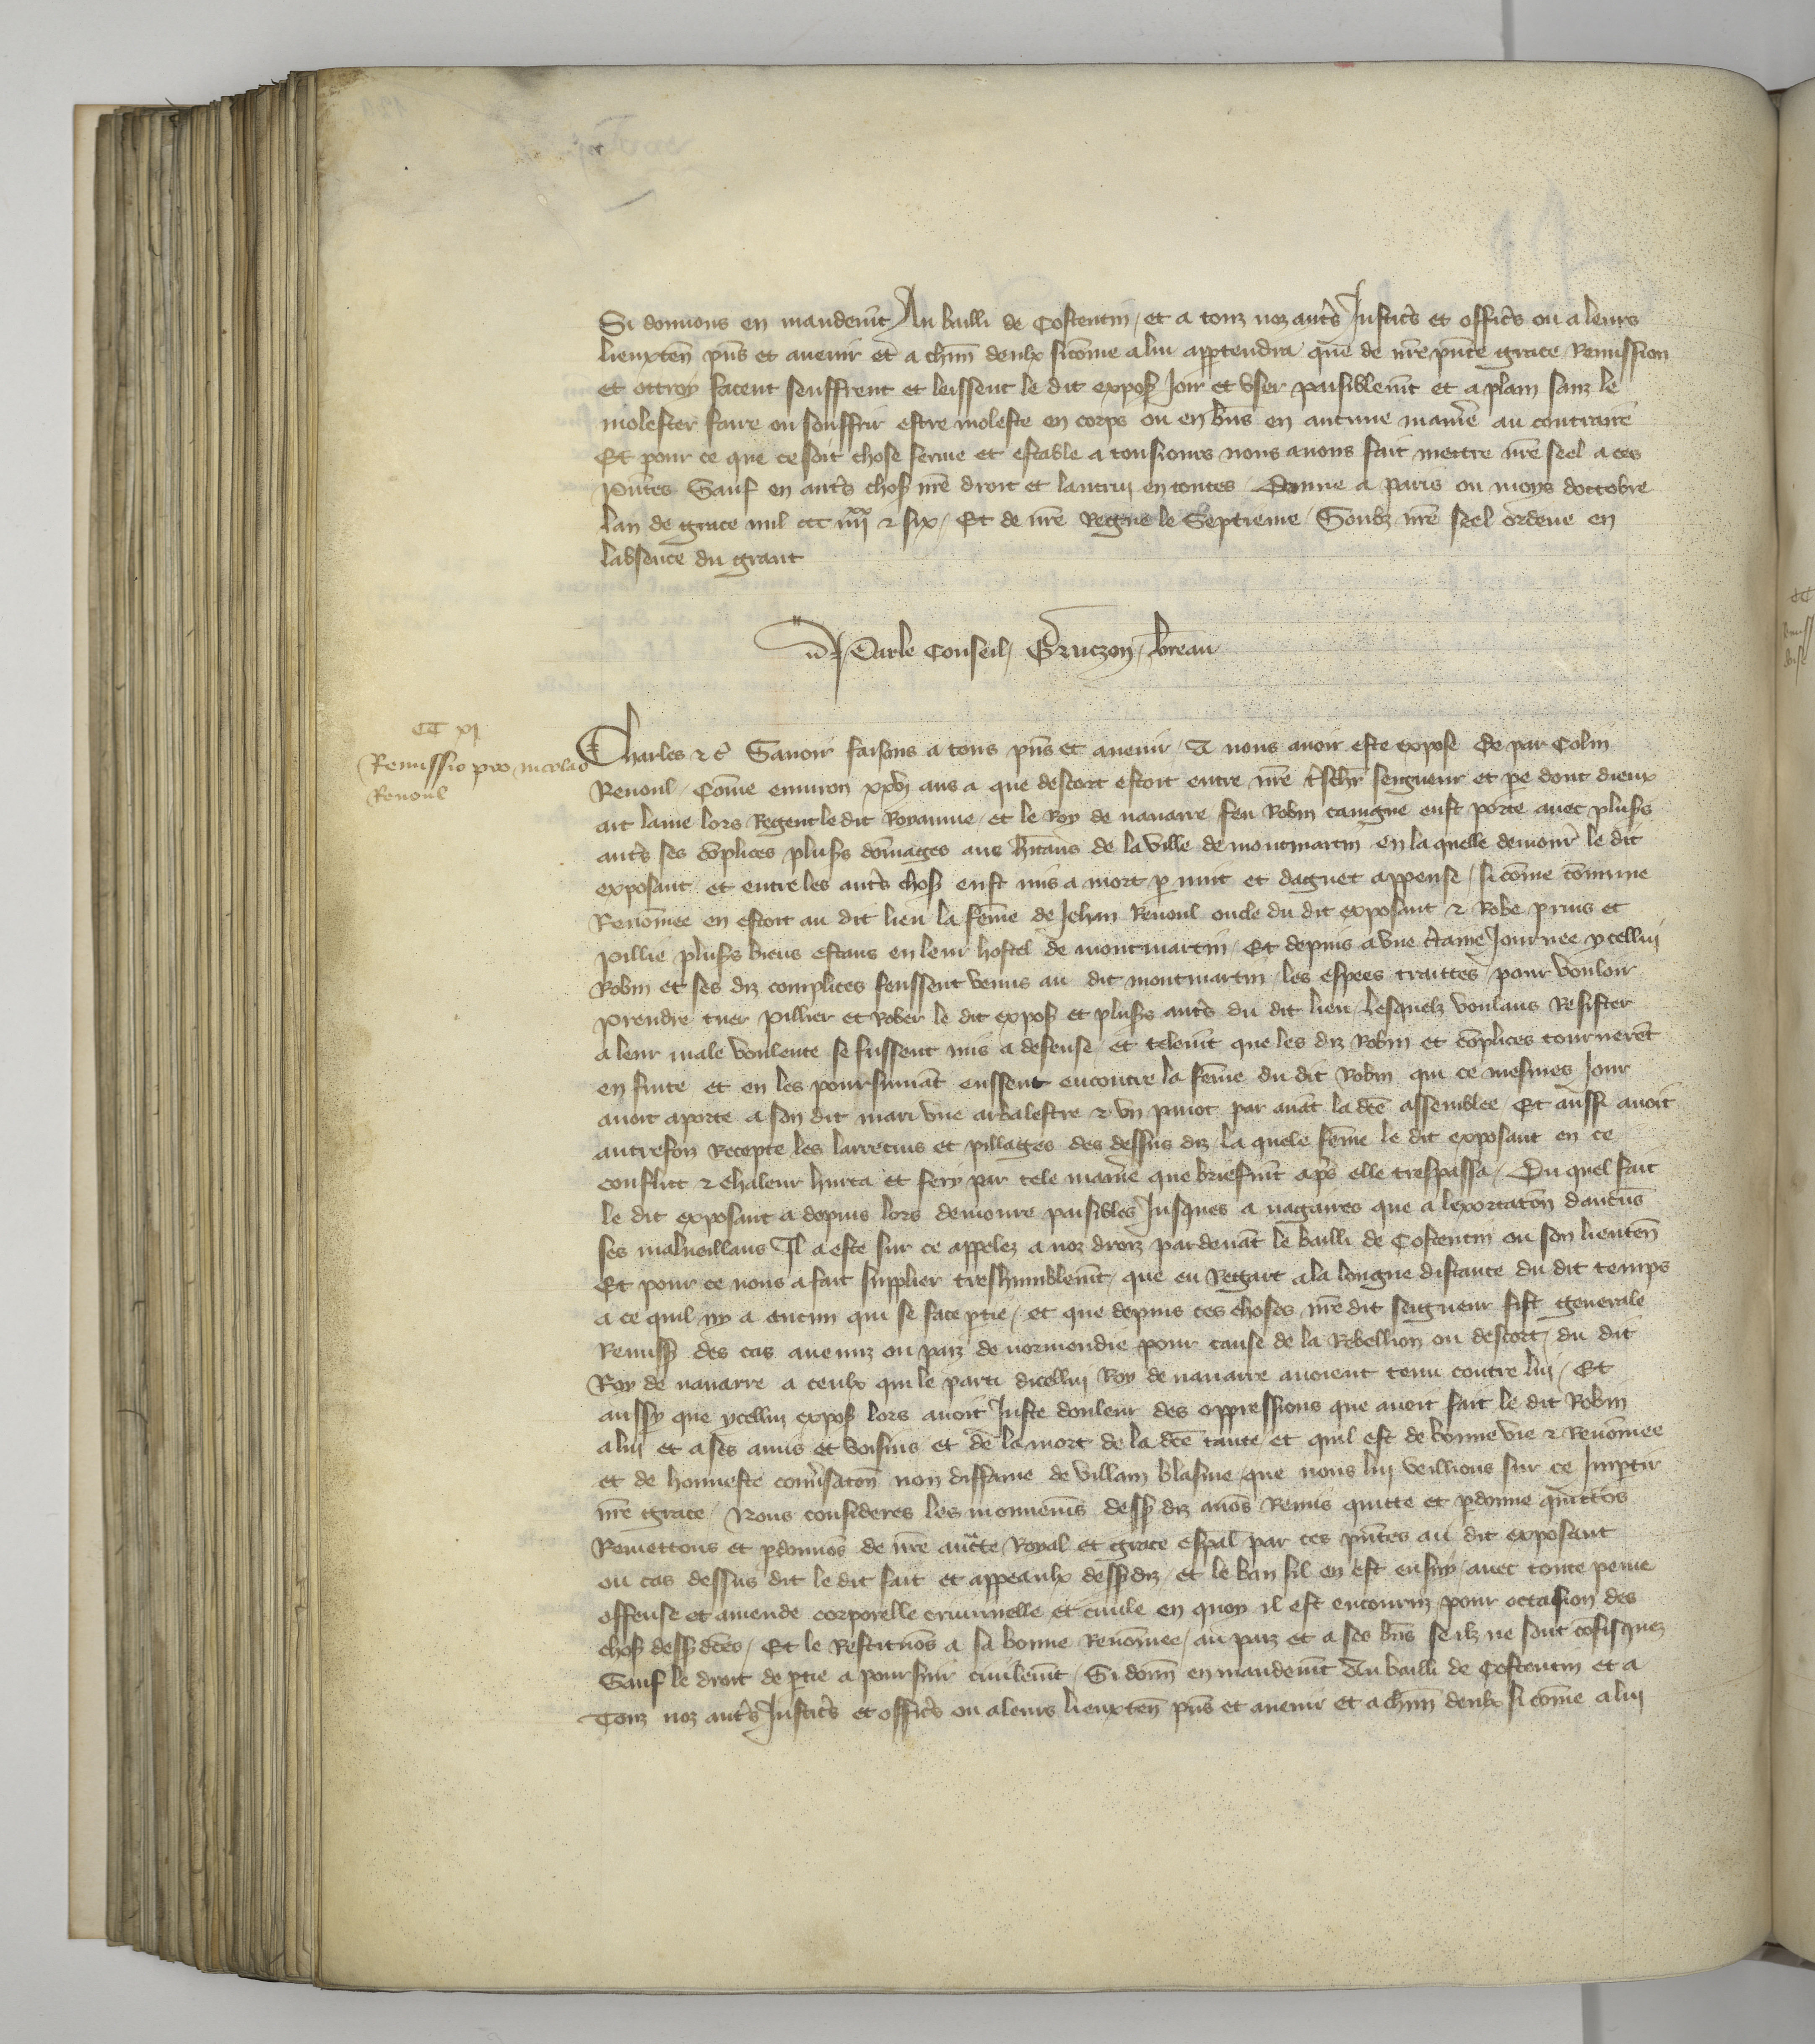 Si donnons en mandem̃t Au bailli de Costentin / et a touz noz autr̃s Justic̃s et offic̃s ou a leurs
lieuxteñ pñs et avenir et a chũn deulx sicõme a lui appartendra que de nr̃e pñte grace Remission
et ottroy facent seuffrent et leissent le dit expoſ Joir et user paisiblem̃t et a plain sanz le
molester faire ou souffrir estre moleste en corps ou en biẽs en aucune maniẽe au contraire
Et pour ce que ce soit chose ferme et estable a tousiours nous avons fait mettre nr̃e seel a ces
pñtes Sauf en autr̃s choſ nr̃e droit et lautruy en toutes Donne a paris ou moys doctobre
lan de grace mil ccc iiii xx & six / Et de nr̃e Regne le Septieme / Soubz nr̃e seel ordene en
labsence du grant
Par le Conseil / Gruczon / breau
CC xj
Remissio pro nicolao
Renoul
Charles &c̃ Savoir faisons a tous pñs et avenir / A nous avoir este expose de par Colin
Renoul / Cõme environ xxvj ans a que descort estoit entre nr̃e tr̃schr̃ seigneur et pe dont dieux
ait lame lors Regent le dit Royaume / et le Roy de navarre feu Robin canigne eust porte avec plusrs
autr̃s ses cõplices plusrs dõmages aus hĩtans de la ville de montmartin en la quelle demour̃ le dit
exposant et entre les autr̃s choſ eust mis a mort p nuit et daguet appense / si cõme cõmune
Renõmee en estoit au dit lieu la fẽme de Jehan Renoul oncle du dit exposant & Robe prins et
pillie plusrs biens estans en leur hostel de montmartin / Et depuis a une c̃taine Journee ycellui
Robin et ses diz complices feussent venus au dit montmartin / les espees traittes / pour vouloir
prendre tuer pillier et Rober le dit expoſ et plusrs autr̃s du dit lieu / Lesquelz voulans Resister
a leur male voulente se fussent mis a defense / et telem̃t que les diz Robin et cõplices tournerẽt
en fuite et en les poursuiuãt eussent encontre la fẽme du dit Robin qui ce mesmes Jour
avoit aporte a son dit mari une arbalestre & un pavot par avãt la dc̃e assemblee / Et aussi avoit
autrefoiz Recepte les larrecins et pillages des dessus diz / la quele fẽme le dit exposant en ce
conflict & chaleur hurta et fery par tele maniẽe que briefmt apr̃s elle trespassa / Du quel fait
le dit exposant a depuis lors demoure paisibles Jusques a nagaires que a lexortatõn daucũs
ses malveillans Il a este sur ce appelez a noz droiz pardevãt le bailli de Costentin ou son lieuteñ
Et pour ce nous a fait supplier treshumblem̃t / que eu Regart a la longue distance du dit temps
a ce quil ny a aucun qui se face p̃tie / et que depuis ces choses nr̃e dit seigneur fist generale
Remiss̃ des cas avenuz ou paiz de normendie pour cause de la Rebellion ou descort / du dit
Roy de navarre a ceulx qui le parti dicellui Roy de navarre avoient tenu contre lui / Et
aussy que ycellui expoſ lors avoit Juste douleur des oppressions que avoit fait le dit Robin
a lui et a ses amis et voisins et de la mort de la dc̃e tante et quil est de bonne vie & Renõmee
et de honneste conṽsatõn non diffame de villain blasme que nous lui veillions sur ce Impartir
nr̃e grace / Nous consideres les mouvem̃s dess̃ diz avõs Remis quitte et p̃donne quittõs
Remettons et p̃donnõs de nr̃e auctte Royal et grace esp̃al par ces pñtes au dit exposant
ou cas dessus dit le dit fait et appeaulx dess̃diz / et le ban sil en est ensuy / avec toute peine
offense et amende corporelle criminelle et civile en quoy il est encouru pour occasion des
choſ dess̃dc̃es / Et le Restituõs a sa bonne Renõmee / au paiz et a ses biẽs se ilz ne sont cõfisquez
Sauf le droit de p̃tie a poursuir civilem̃t / Si donñ en mandem̃t Au bailli de Costentin et a
Touz noz autr̃s Justic̃s et offic̃s ou a leurs lieuxteñ pñs et avenir et a chũn deulx si cõme a lui